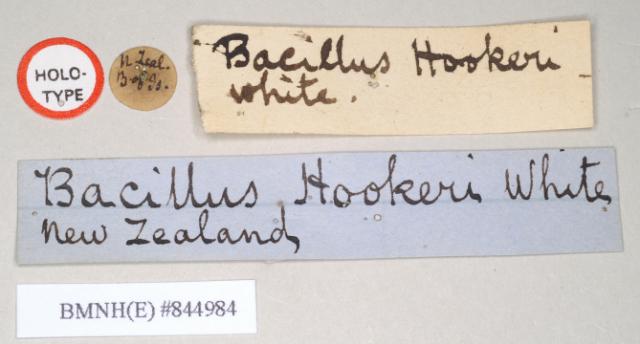 HOLO-
TYPE
N Zeal.
B of Is.
Bacillus Hookeri
White.
Bacillus Hookeri White
New Zealand
BMNH(E) #844984